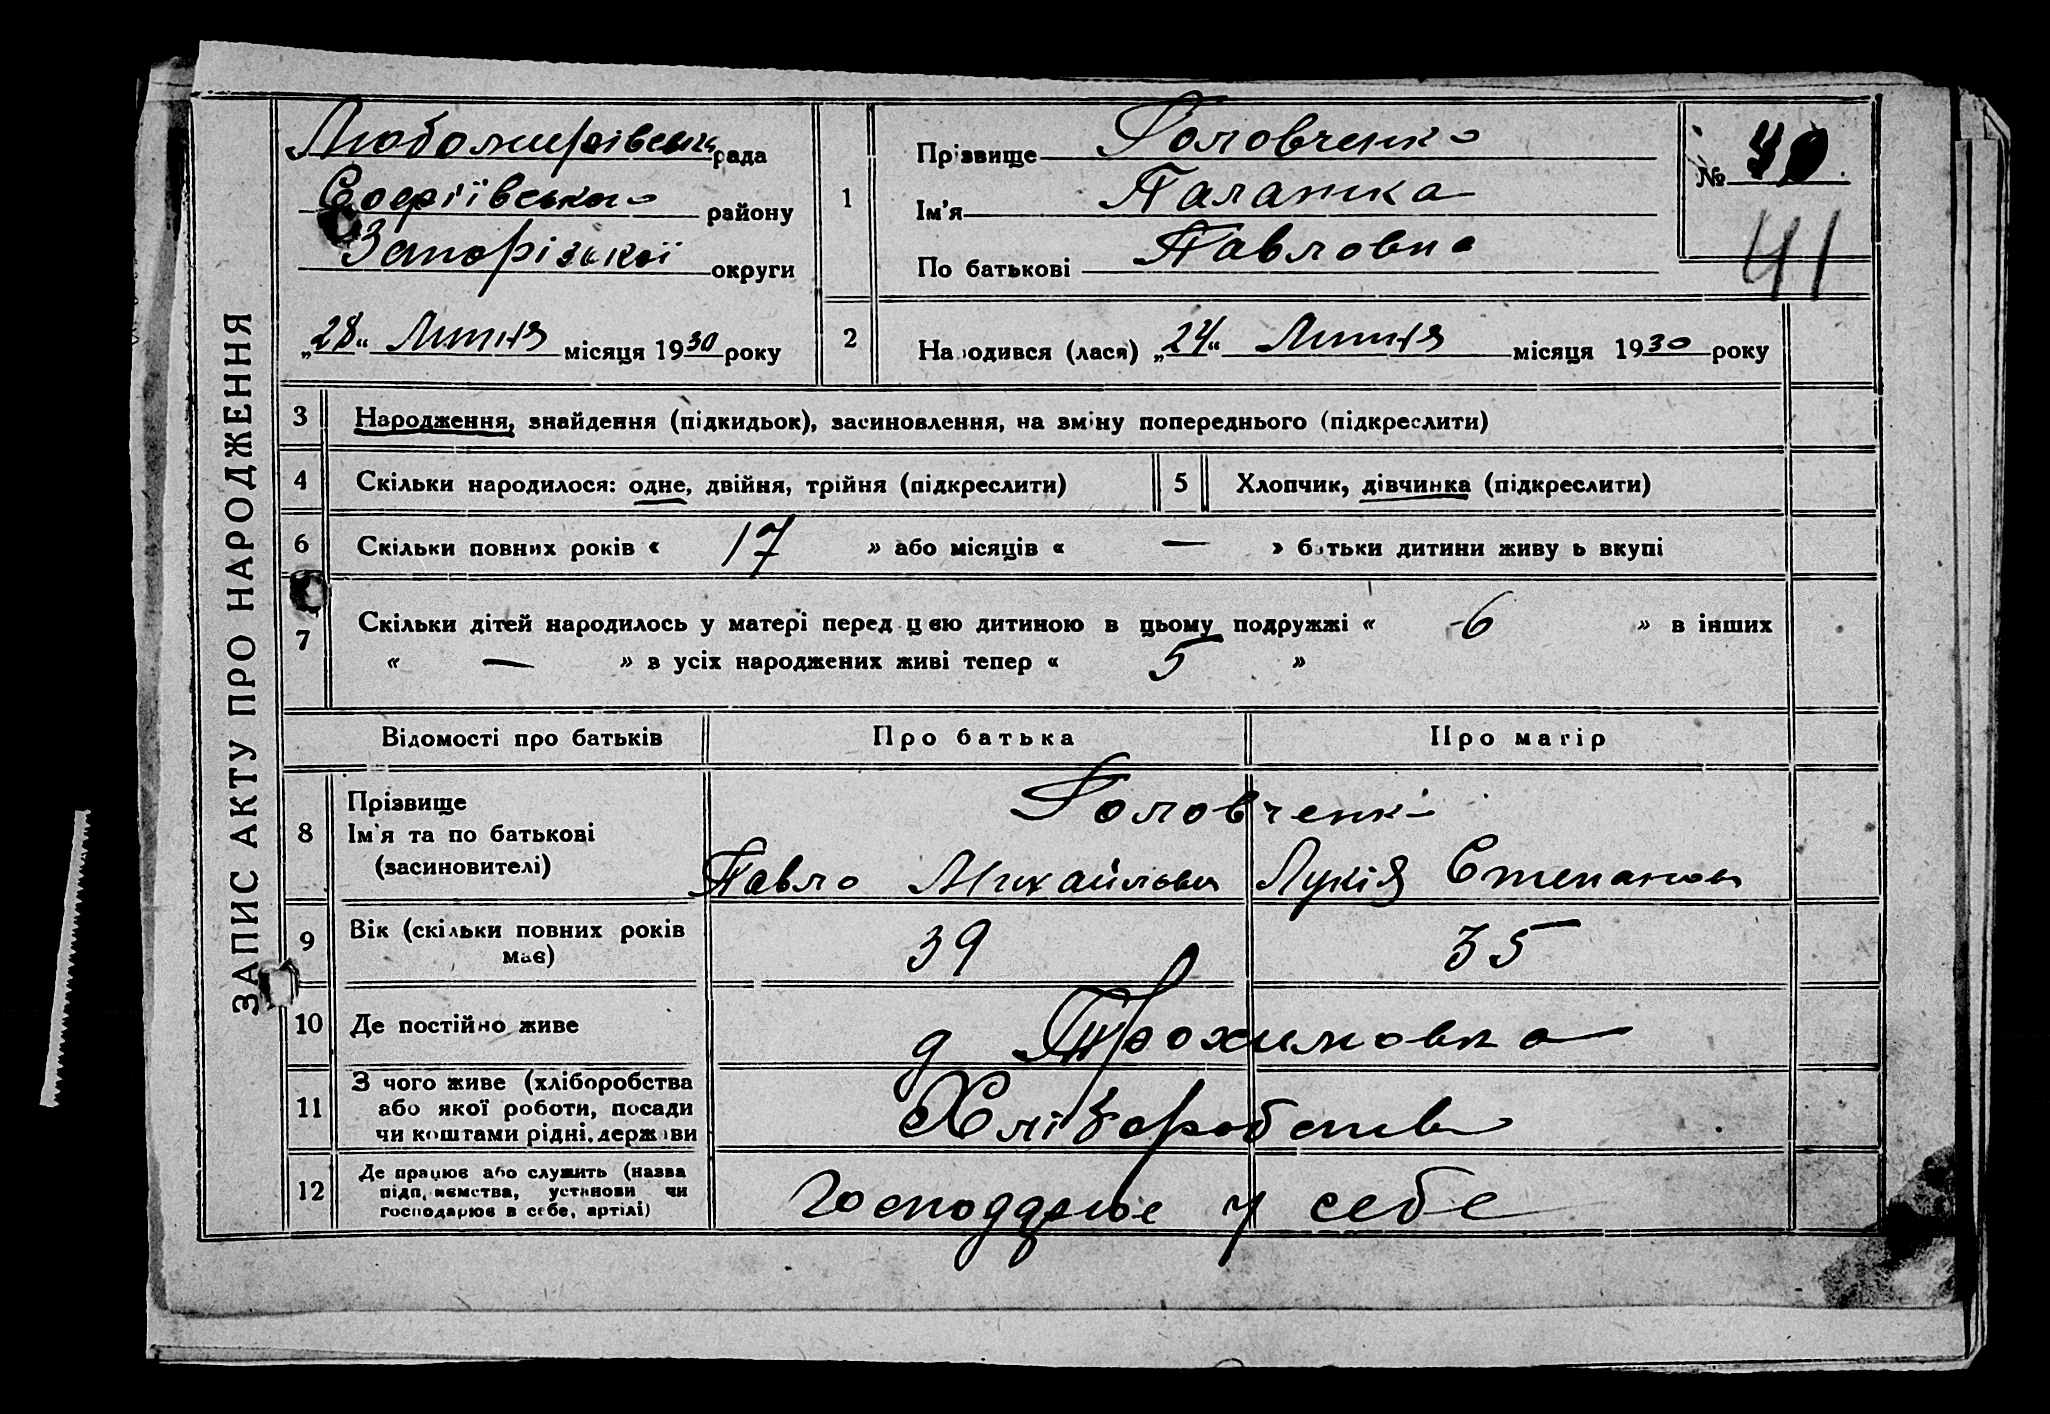 ЗАПИС АКТУ ПРО НАРОДЖЕННЯ
Любомирівська рада
Софіївсько району
Запорізької округи
„28“ Липня місяця 1930 року
1
Прізвище Головченко
Ім'я Палажка
По батькові Павловна
№
41
2
Народився (лася) „24“ Липня місяця 1930 року
3 Народження, знайдення (підкидьок), засиновлення, на зміну попереднього (підкреслити)
4 Скільки народилося: одне, двійня, трійня (підкреслити)
5 Хлопчик, дівчинка (підкреслити)
6 Скільки повних років « 17 » або місяців « — » батьки дитини живуть вкупі
7 Скільки дітей народилось у матері перед цею дитиною в цьому подружжі « 6 » в інших
« — » в усіх народжених живі тепер « 5 »
Відомості про батьків
Про батька
Про матір
8 Прізвище
Ім'я та по батькові
(засиновителі)
Головченко
Павло Михайлович
Лукія Степановна
9 Вік (скільки повних років
має)
39
35
10 Де постійно живе
д Трохимовка
11 З чого живе (хліборобства
або якої роботи, посади
чи коштами рідні, держави
Хліборобства
12 Де працює або служить (назва
підприємства, установи чи
господарює в себе, артілі)
у себе